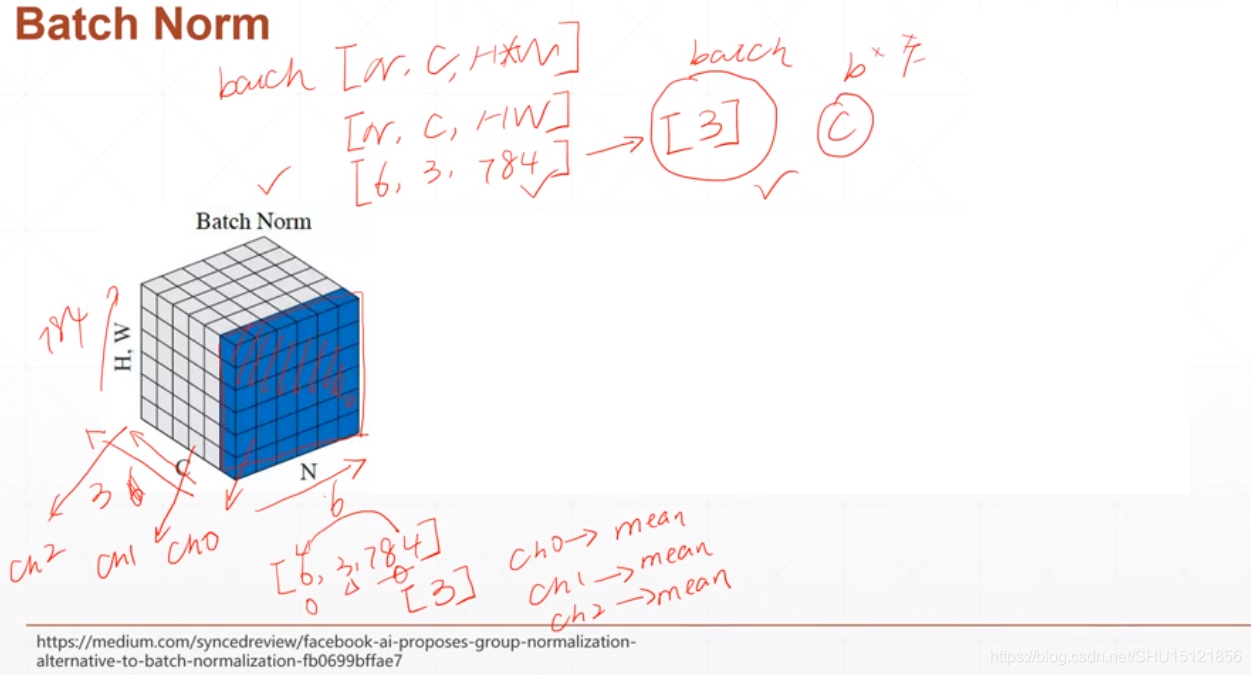 Batch Norm
batch [N, C, H*W]
batch
[N, C, HW]
[3]
C
[6, 3, 784]
Batch Norm
784
H, W
C
N
3
6
ch2
ch1
ch0
[6, 3, 784]
0
[3]
ch0→ mean
ch1→mean
ch2→mean
https://medium.com/syncedreview/facebook-ai-proposes-group-normalization-
alternative-to-batch-normalization-fb0699bffae7
https://blog.csdn.net/SHU15121856